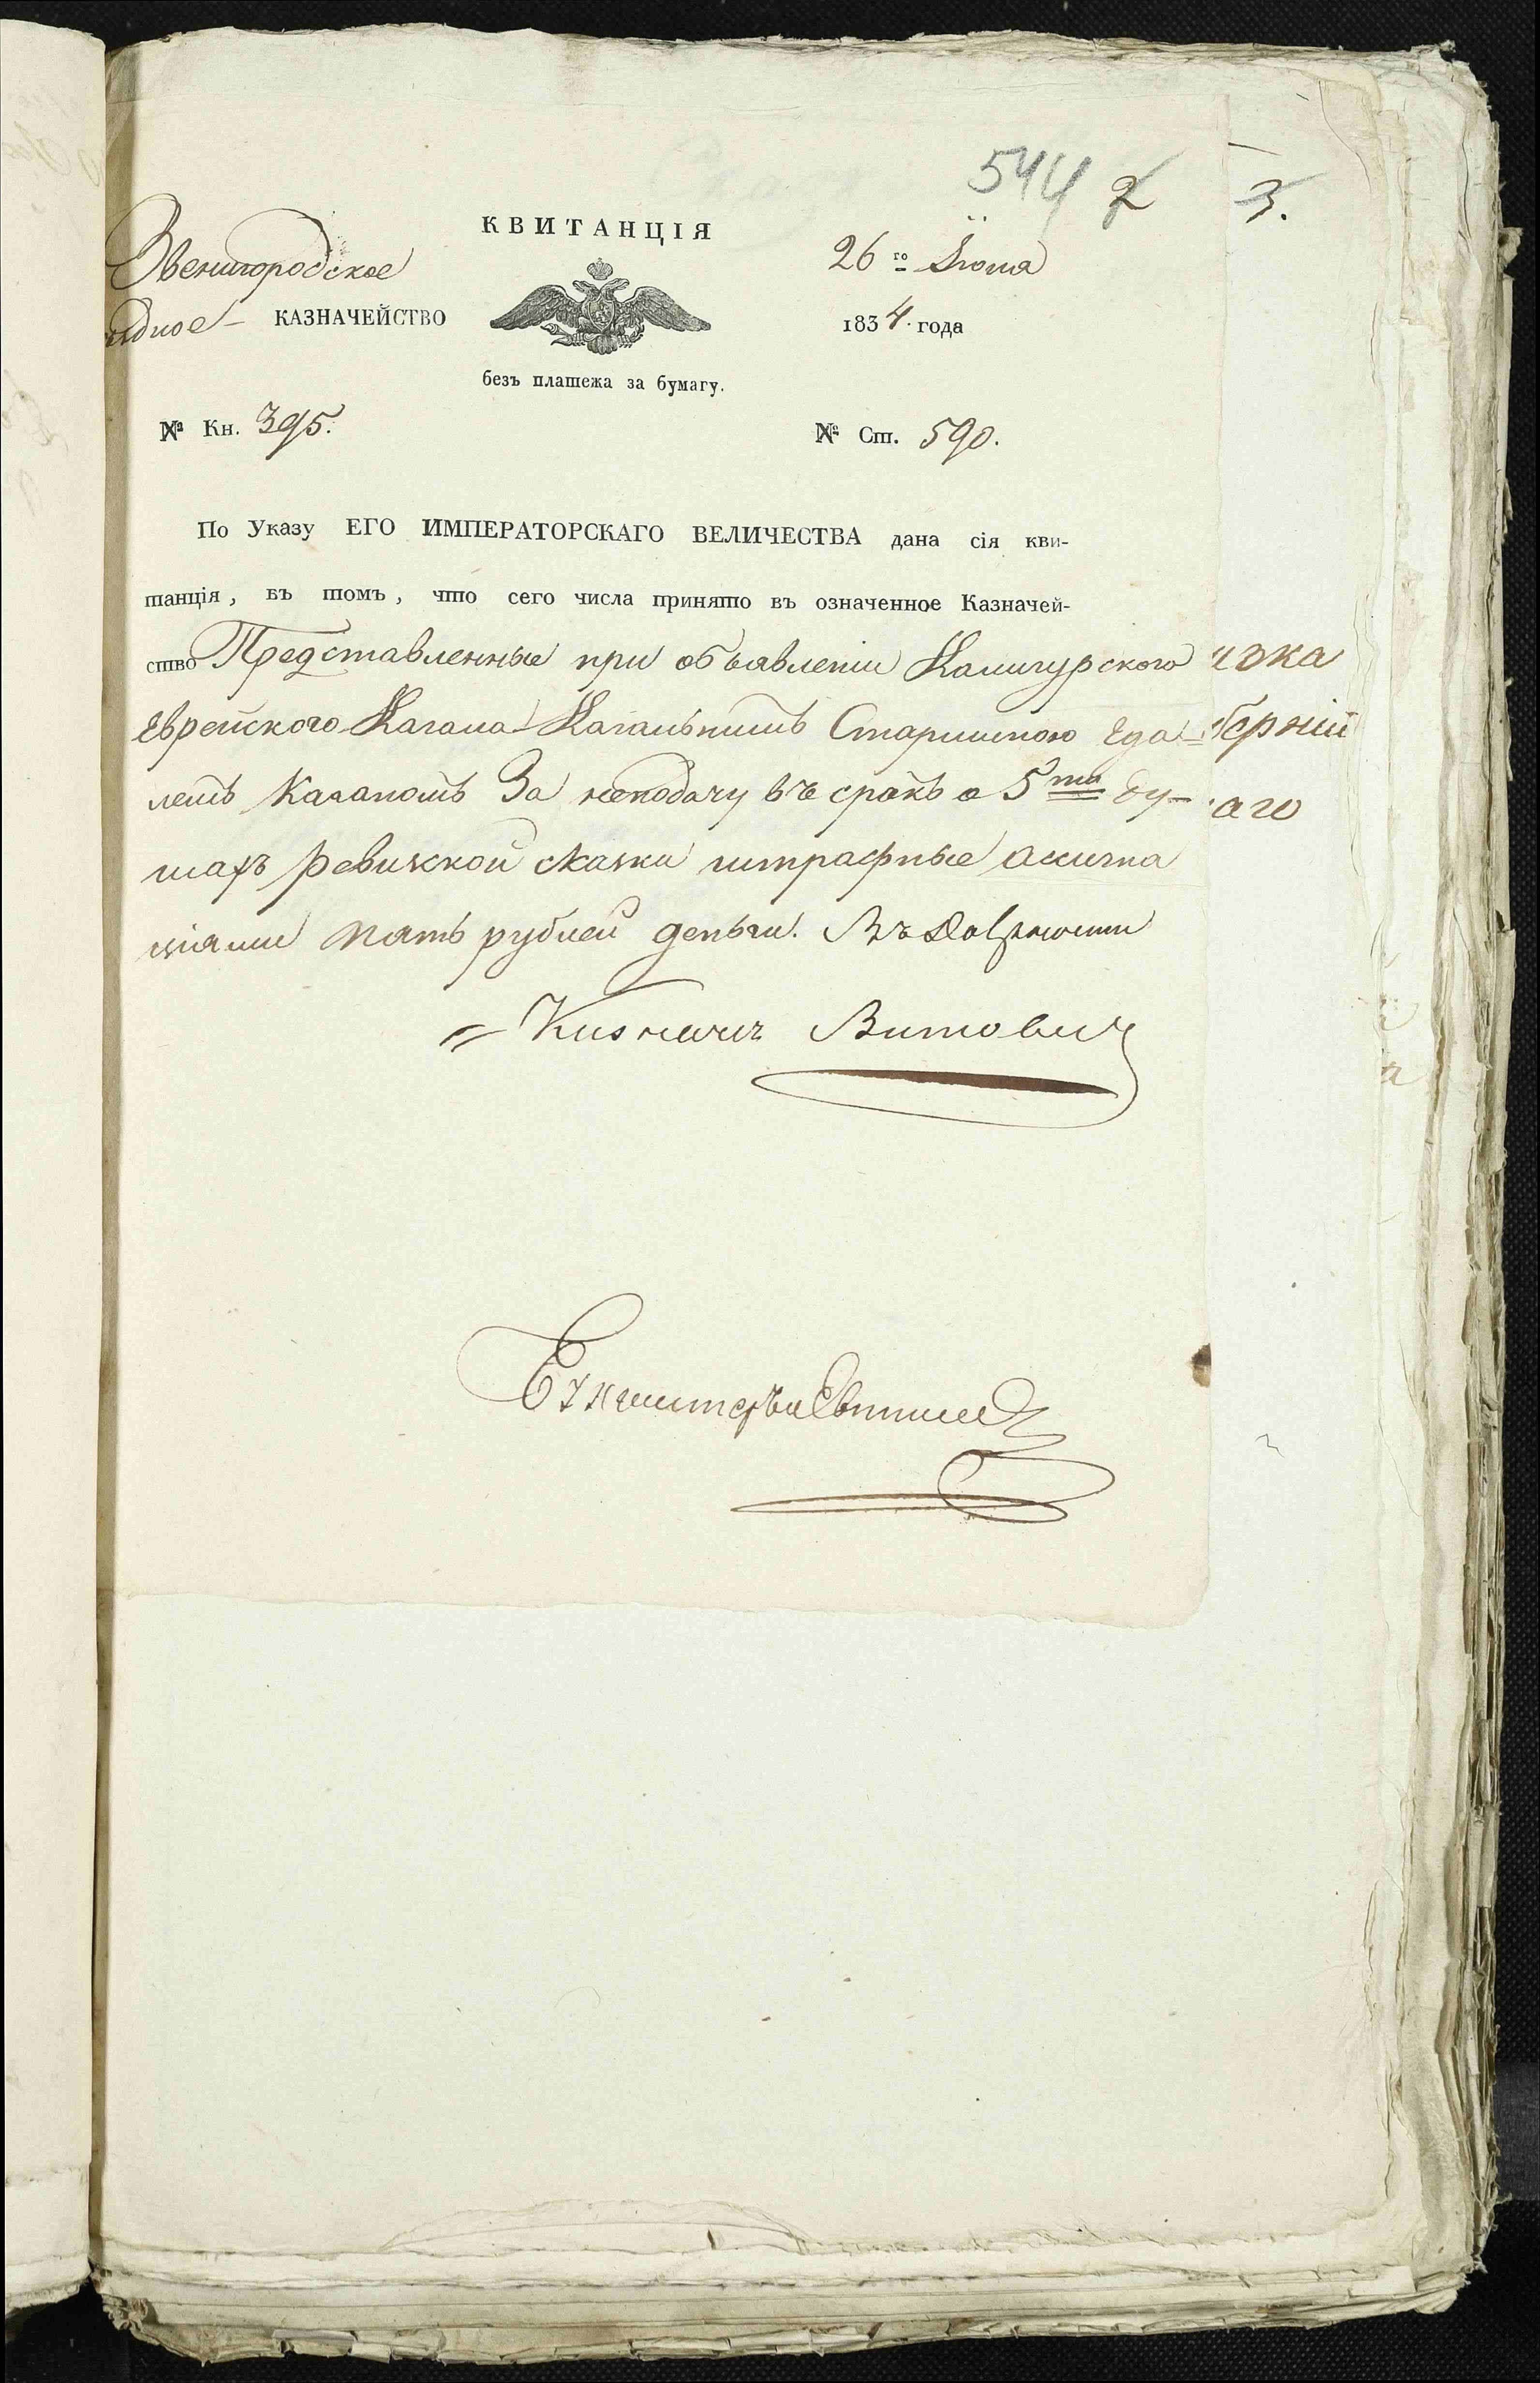 544 2 3.
КВИТАНЦІЯ
Звенигородское
26го Іюня
ѣздное КАЗНАЧЕЙСТВО
1834. года
безъ платежа за бумагу.
№ Кн. 395.
№ Ст. 590.
По Указу ЕГО ИМПЕРАТОРСКАГО ВЕЛИЧЕСТВА дана сія кви-
танція, въ томъ, что сего числа принято въ означенное Казначей-
ство Представленные при объявленіи Калигурского
Еврейского Кагала Кагальнымъ Старшиною Еда-
лемъ Каганомъ За неподачу въ срокъ о 5ти ду-
шахъ Ревизкой сказки штрафные ассигна
ціями пять рублей деньги.
Казначей Витович